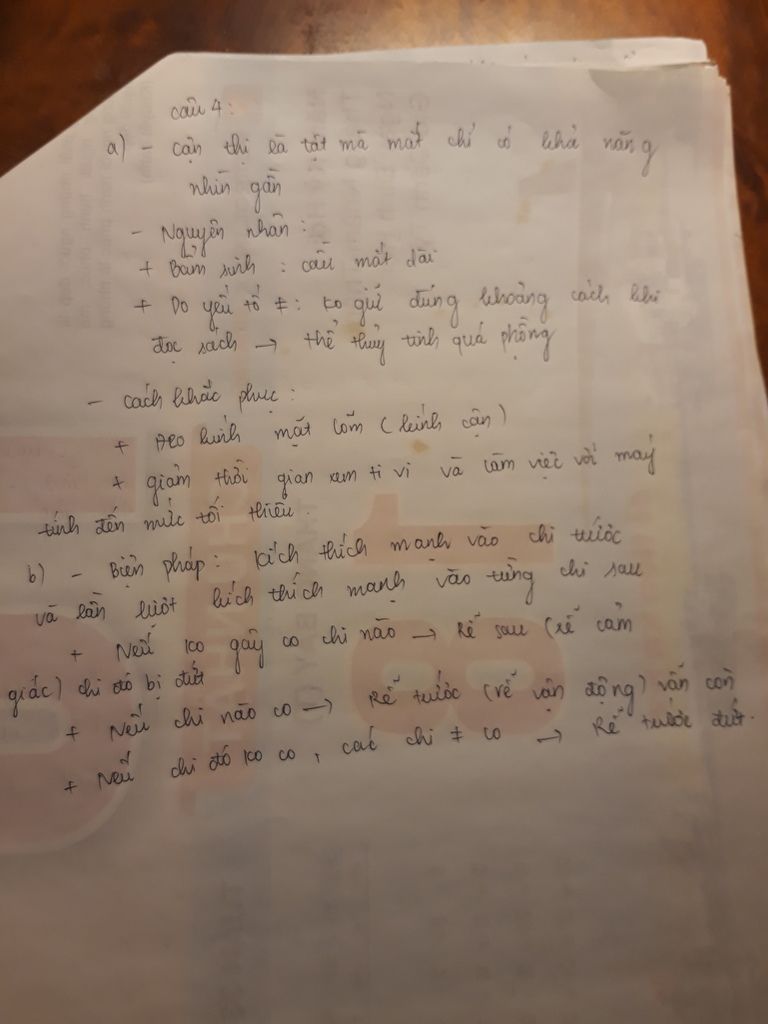 câu 4:
a) - cận thị là tật mà mắt chỉ có khả năng
nhìn gần
- Nguyên nhân:
+ Bẩm sinh : cầu mắt dài
+ Do yếu tố ≠: ko giữ đúng khoảng cách khi
đọc sách → thể thủy tinh quá phồng
- cách khắc phục:
+ Đeo kính mặt lõm (kính cận)
+ giảm thời gian xem ti vi và làm việc với máy
tính đến mức tối thiểu.
b) - Biện pháp: Kích thích mạnh vào chi trước
và lần lượt kích thích mạnh vào từng chi sau
+ Nếu ko gây co chi nào → Rễ sau (rễ cảm
giác) chi đó bị đứt
+ Nếu chi nào co → Rễ trước (rễ vận động) vẫn còn
+ Nếu chi đó ko co, các chi ≠ co → Rễ trước đứt.